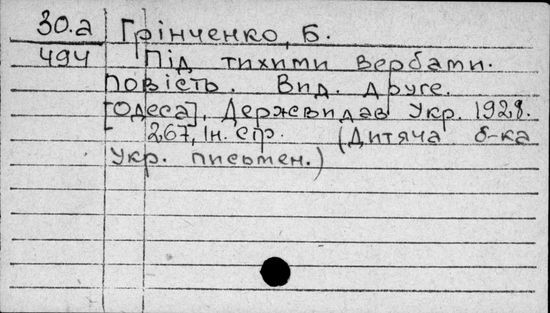 30.а Грінченко, Б.
494 Під тихими вербами.
Повість. Вид. друге.
[Одеса], Держвидав Укр. 1928.
267, Ін. стр. (Дитяча б-ка
Укр. письмен.)